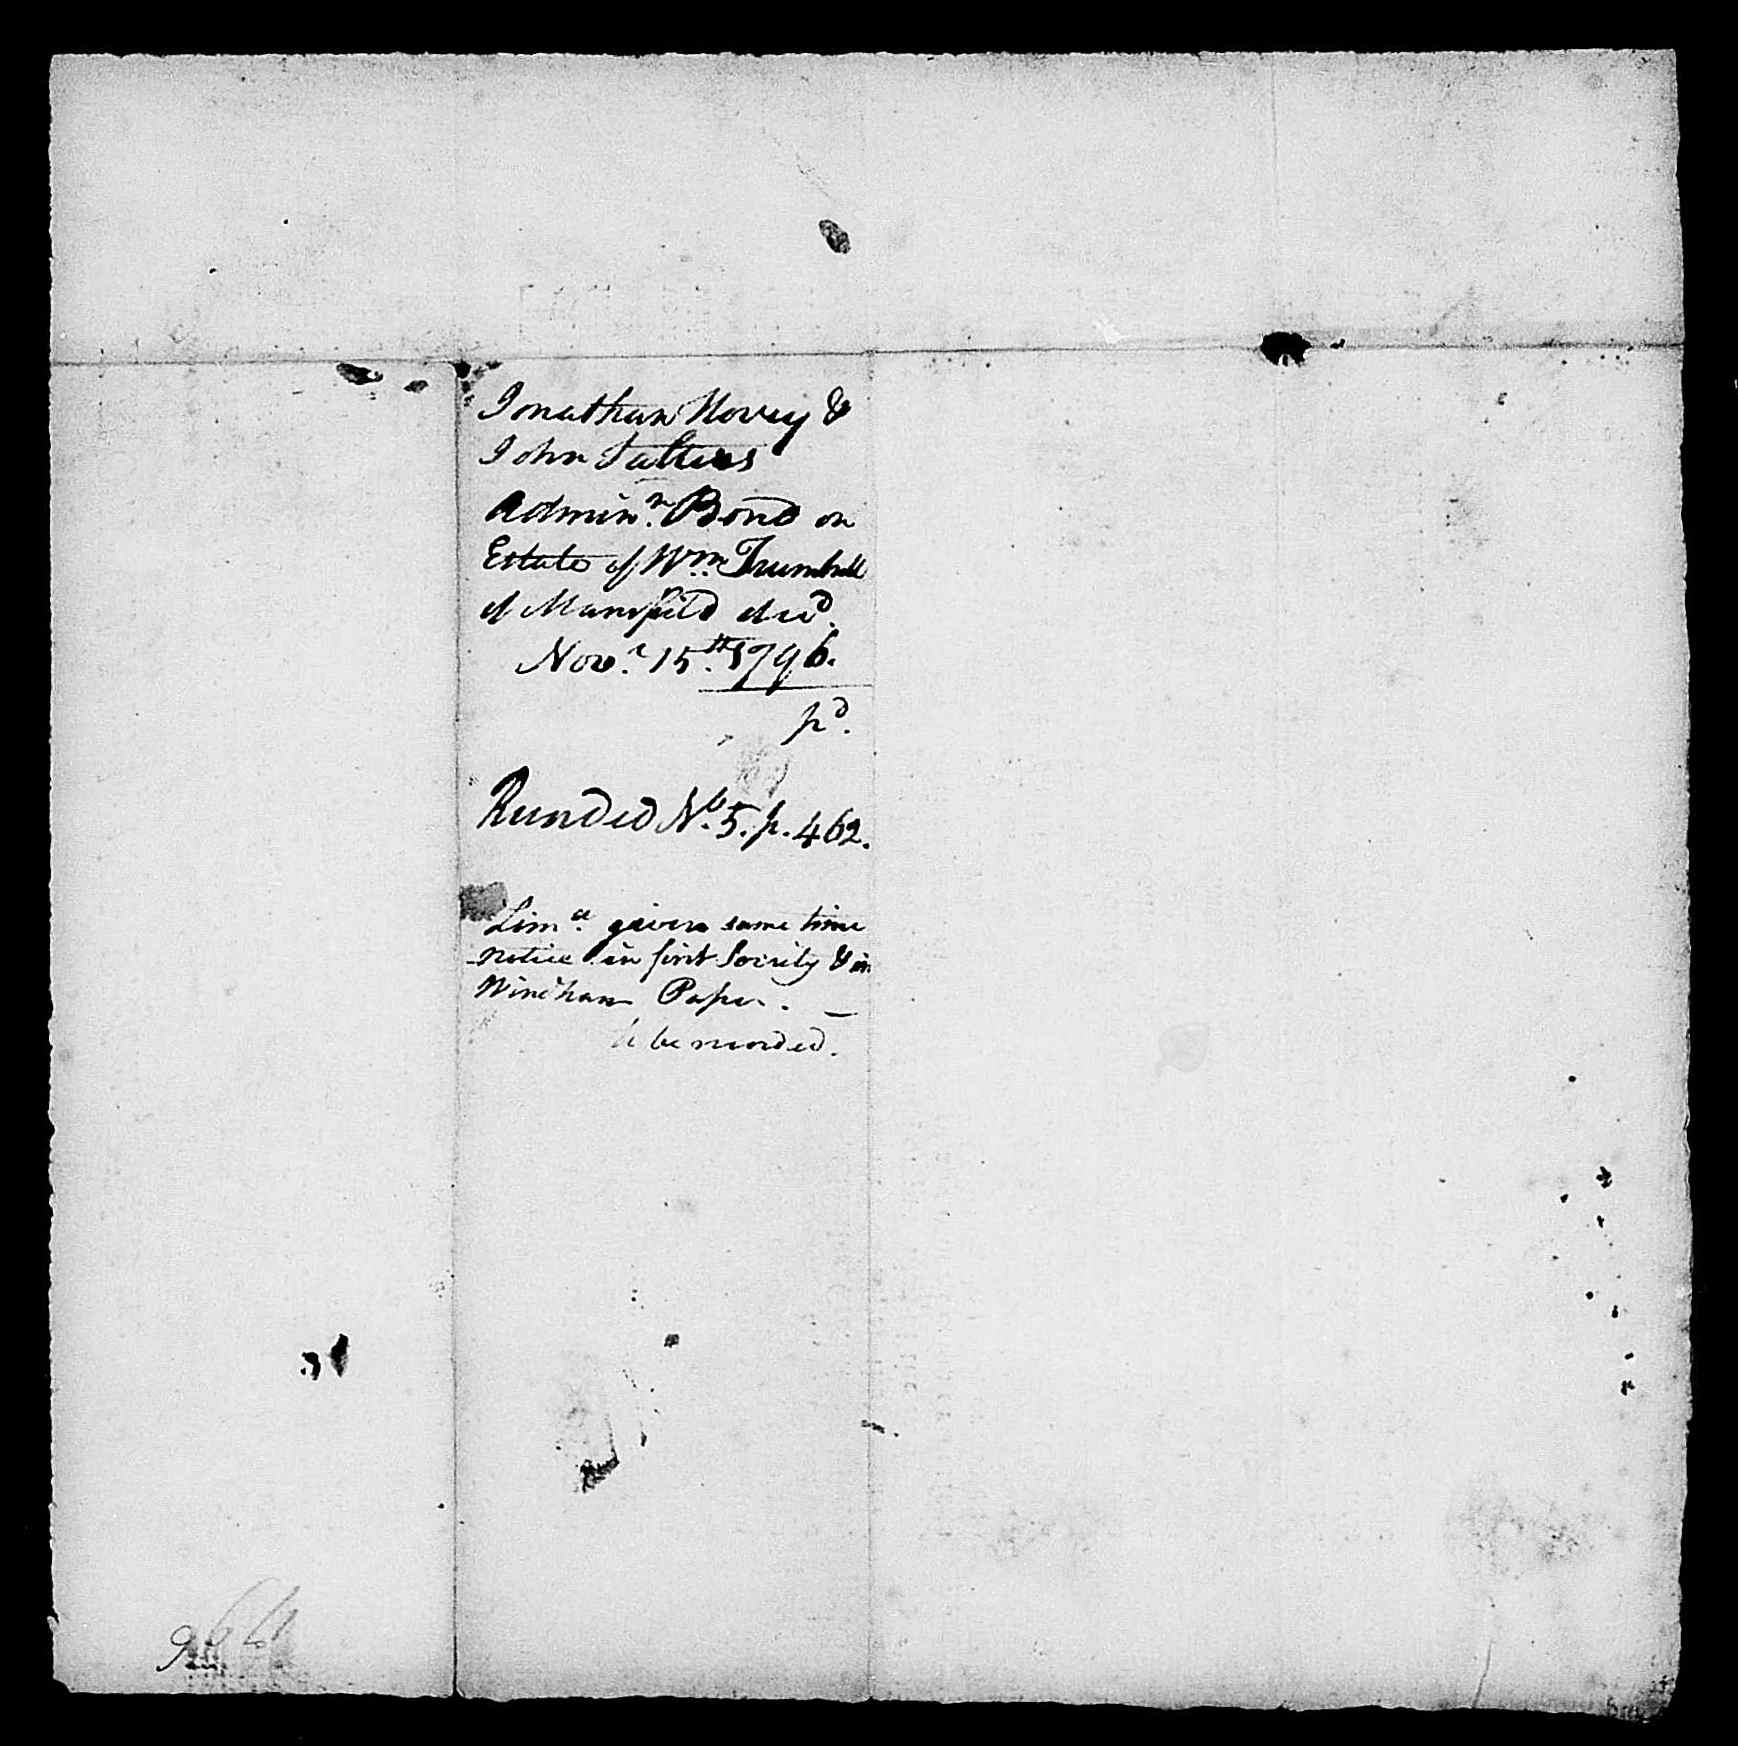 Jonathan Hovey &
John Salters
Admin.n Bond on
Estate of Wm. Trumbull
of Mansfield decd.
Novr. 15th. 1796.
pd.
Recorded No. 5. p. 462.
Lima. given same time
notice in first Society & in
Windham Paper. —
to be recorded.